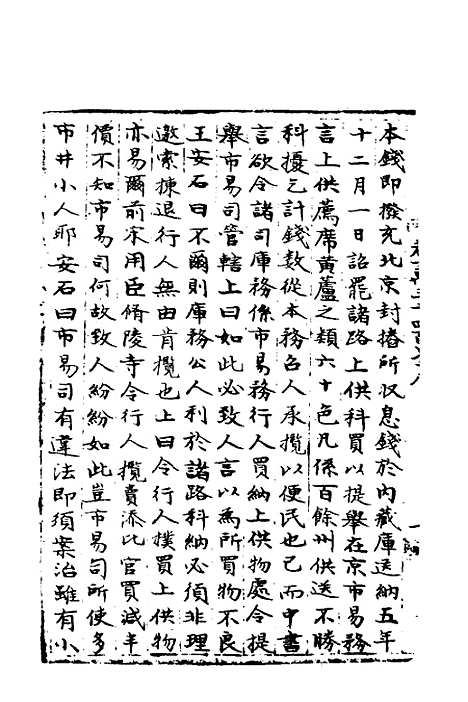 本錢即撥充北京封樁所収息錢於內藏庫送納五年
十二月一日詔罷諸路上供科買以提舉在京市易務
言上供薦席黃蘆之類六十色凡係百餘州供送不勝
科擾乞計錢數從本務召人承攬以便民也已而中書
言欲令諸司庫務係市易務行人買納上供物處令提
舉市易司管轄上曰如此必致人言以為所買物不良
王安石曰不爾則庫務公人利於諸路科納必須非理
邀索揀退行人無由肯攬也上曰令行人撲買上供物
亦易爾前宋用臣脩陵寺令行人攬賣添此官買減半
價不知市易司何故致人紛紛如此豈市易司所使多
市井小人耶安石曰市易司有違法即須案治雖有小